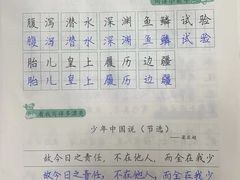 腹泻潜水深渊鱼鳞试验
腹泻潜水深渊鱼鳞试验
胎儿皇上履历边疆
胎儿皇上履历边疆
少年中国说（节选）
——梁启超
故今日之责任，不在他人，而全在我少
故今日之责任，不在他人，而全在我少